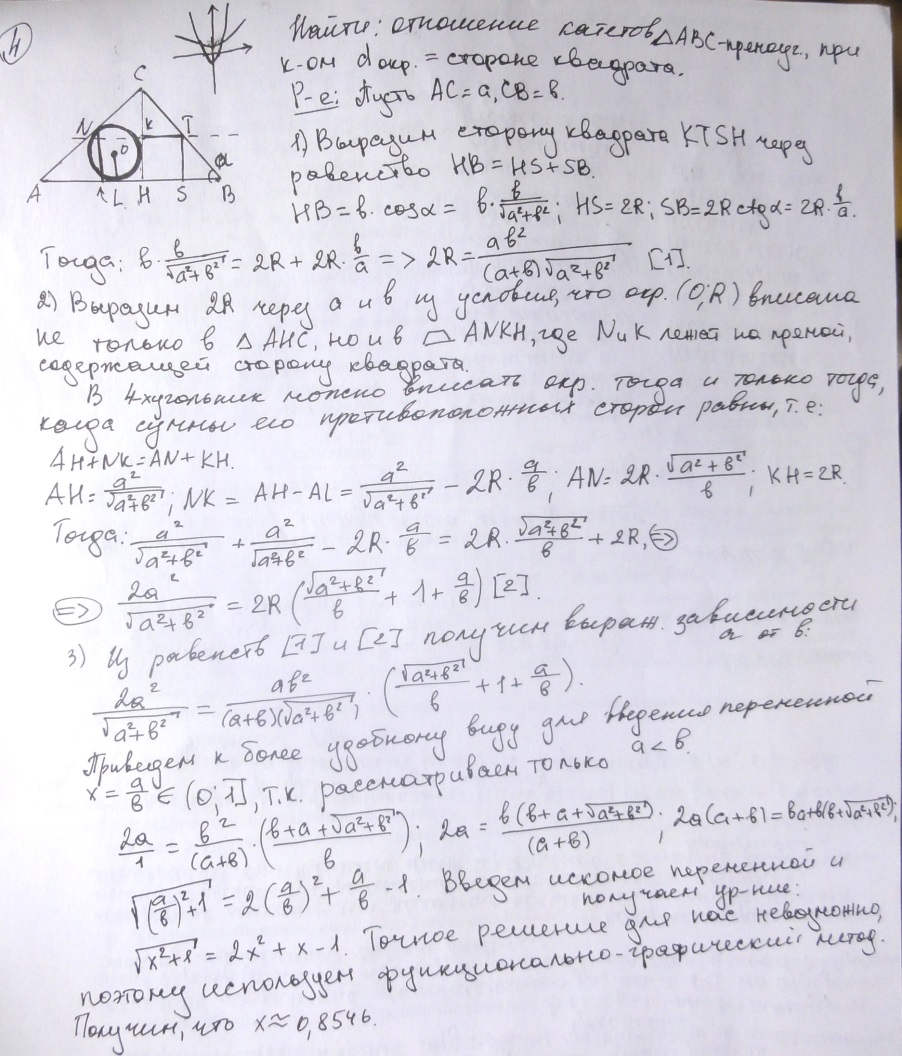 4
Найти: отношение катетов △ABC-прямоуг., при
к-ом d окр. = стороне квадрата.
Р-е: Пусть AC=a, CB=b.
C
N K T
O α
A L H S B
1) Выразим сторону квадрата KTSH через
равенство HB=HS+SB.
HB=b·cosα= b·b/√(a²+b²); HS=2R; SB=2R ctgα=2R·b/a.
Тогда: b·b/√(a²+b²) = 2R+2R·b/a => 2R= ab²/((a+b)√(a²+b²)) [1].
2) Выразим 2R через a и b из условия, что окр. (O;R) вписана
не только в △AHC, но и в ▱ ANKH, где N и K лежат на прямой,
содержащей сторону квадрата.
В 4хугольник можно вписать окр. тогда и только тогда,
когда суммы его противоположных сторон равны, т.е:
AH+NK=AN+KH.
AH= a²/√(a²+b²); NK = AH-AL= a²/√(a²+b²) - 2R·a/b; AN= 2R·√(a²+b²)/b; KH=2R.
Тогда: a²/√(a²+b²) + a²/√(a²+b²) - 2R·a/b = 2R·√(a²+b²)/b + 2R, <=>
<=> 2a²/√(a²+b²) = 2R(√(a²+b²)/b + 1 + a/b) [2].
3) Из равенств [1] и [2] получим выраж. зависимости
a от b:
2a²/√(a²+b²) = ab²/((a+b)(√(a²+b²)) · (√(a²+b²)/b + 1 + a/b).
Приведем к более удобному виду для введения переменной
x= a/b ∈ (0;1], т.к. рассматриваем только a<b.
2a/1 = b²/(a+b) · (b+a+√(a²+b²))/b; 2a = b(b+a+√(a²+b²))/(a+b); 2a(a+b)=ba+b(b+√(a²+b²));
√((a/b)²+1) = 2(a/b)² + a/b - 1. Введем искомое переменной и
получаем ур-ние:
√(x²+1) = 2x²+x-1. Точное решение для нас невозможно,
поэтому используем функционально-графический метод.
Получим, что x≈0,8546.